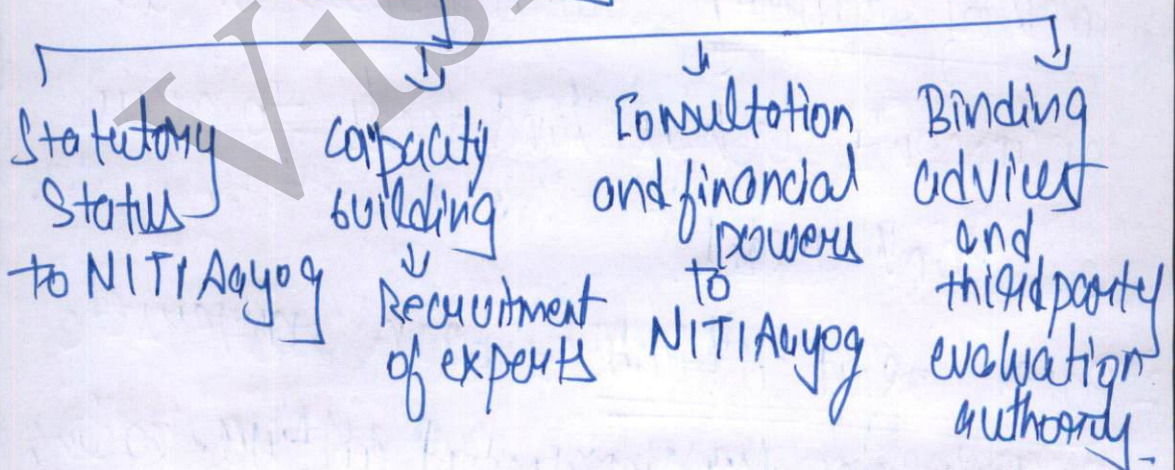 Statutory
Status
to NITI Aayog
capacity
building
Recruitment
of experts
Consultation
and financial
powers
to
NITI Aayog
Binding
advices
and
third party
evaluation
authority.
VIS